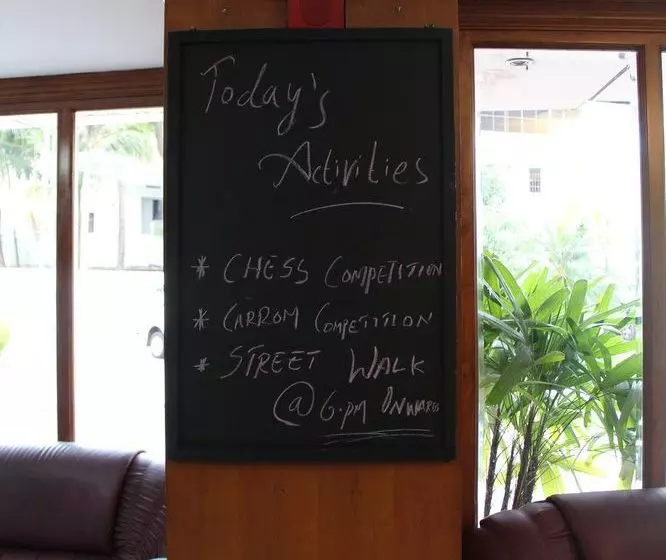 Today's
Activities
* CHESS COMPETITION
* CARROM COMPETITION
* STREET WALK
@ 6.PM ONWARDS